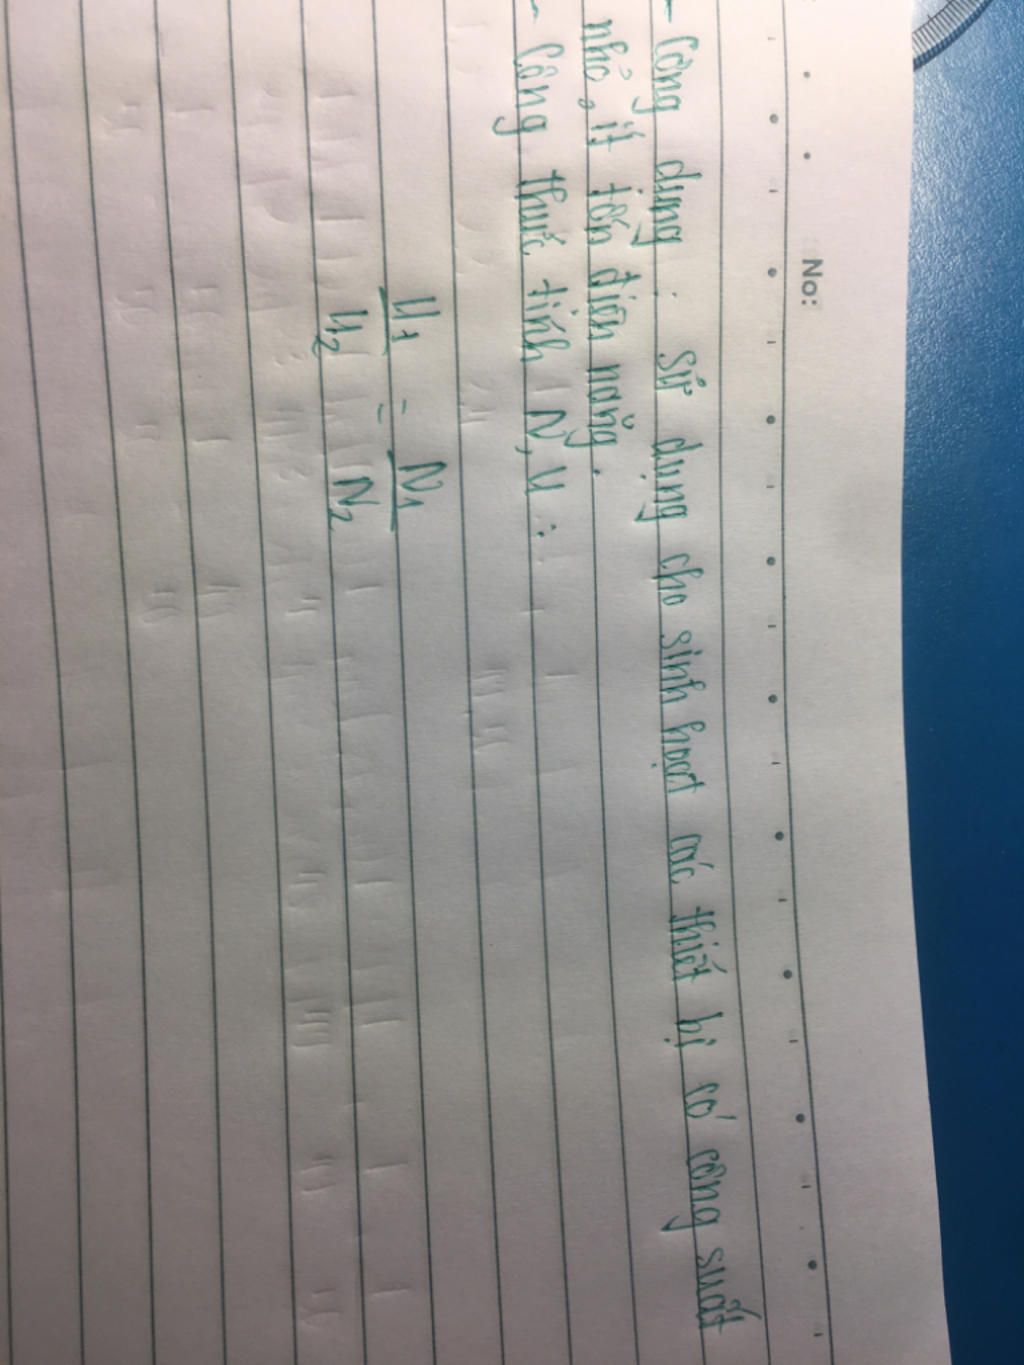 No:
- Công dụng : sử dụng cho sinh hoạt các thiết bị có công suất
nhỏ, ít tốn điện năng.
- Công thức tính N, U :
U1 = N1
U2 N2